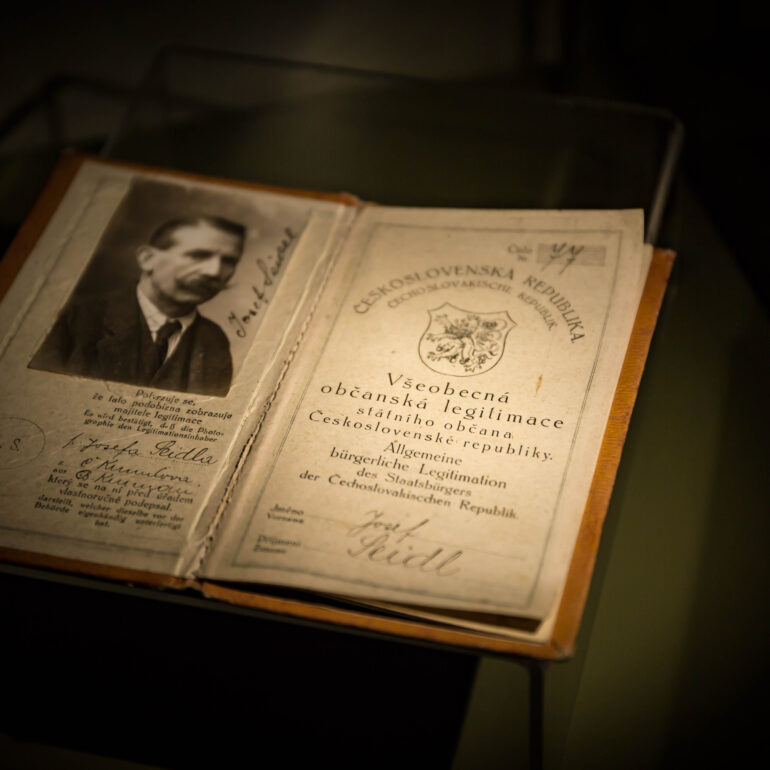 Josef Seidel
Potvrzuje se,
že tato podobizna zobrazuje
majitele legitimace
Es wird bestätigt, daß die Photo-
graphie den Legitimationsinhaber
p. Josefa Seidla
z Č. Krumlova
aus B. Krummau
který se na ní před úřadem
vlastnoručně podepsal.
darstellt, welcher dieselbe vor der
Behörde eigenhändig unterfertigt
hat.
S.
Číslo
Nr. 77
ČESKOSLOVENSKÁ REPUBLIKA.
ČECHOSLAVAKISCHE REPUBLIK.
Všeobecná
občanská legitimace
státního občana
Československé republiky.
Allgemeine
bürgerliche Legitimation
des Staatsbürgers
der Čechoslavakiscchen Republik
Jméno
Vorname Josef
Příjmení
Zuname Seidl